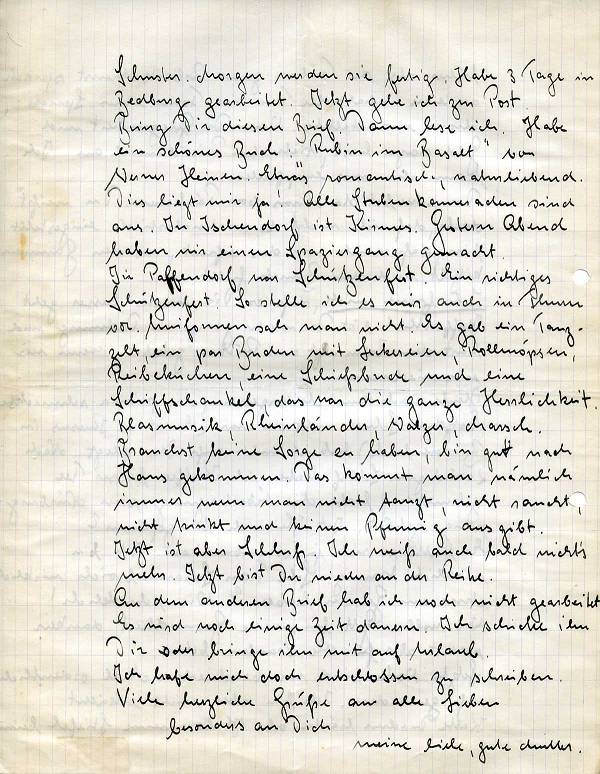 Schuster. Morgen werden sie fertig. Habe 3 Tage in
Bedburg gearbeitet. Jetzt gehe ich zur Post.
Bring Dir diesen Brief. Dann lese ich. Habe
ein schönes Buch: "Rubin im Basalt" von
Werner Heinen. Etwas romantisch, naturliebend.
Dies liegt mir ja! Alle Stubenkameraden sind
aus. In Ischendorf ist Kirmes. Gestern Abend
haben wir einen Spaziergang gemacht.
In Paffendorf war Schützenfest. Ein richtiges
Schützenfest. So stelle ich es mir auch in
vor. Uniformen sah man nicht. Es gab ein Tanz-
zelt, ein par Buden mit Leckereien, Rollmöpsen,
Reibekuchen, eine Schießbude und eine
Schiffschaukel, das war die ganze Herrlichkeit.
Blasmusik, Rheinländer, Walzer, Marsch.
Brauchst keine Sorge zu haben, bin gut nach
Haus gekommen. Das kommt man nämlich
immer wenn man nicht tanzt, nicht raucht,
nicht trinkt und keinen Pfennig ausgibt.
Jetzt ist aber Schluß. Ich weiß auch bald nichts
mehr. Jetzt bist Du wieder an der Reihe.
An dem anderen Brief hab ich noch nicht gearbeitet
Es wird noch einige Zeit dauern. Ich schicke ihn
Dir oder bringe ihn mit auf Urlaub.
Ich habe mich doch entschlossen zu schreiben.
Viele herzliche Grüße an alle Lieben
besonders an Dich
meine liebe, gute Mutter.